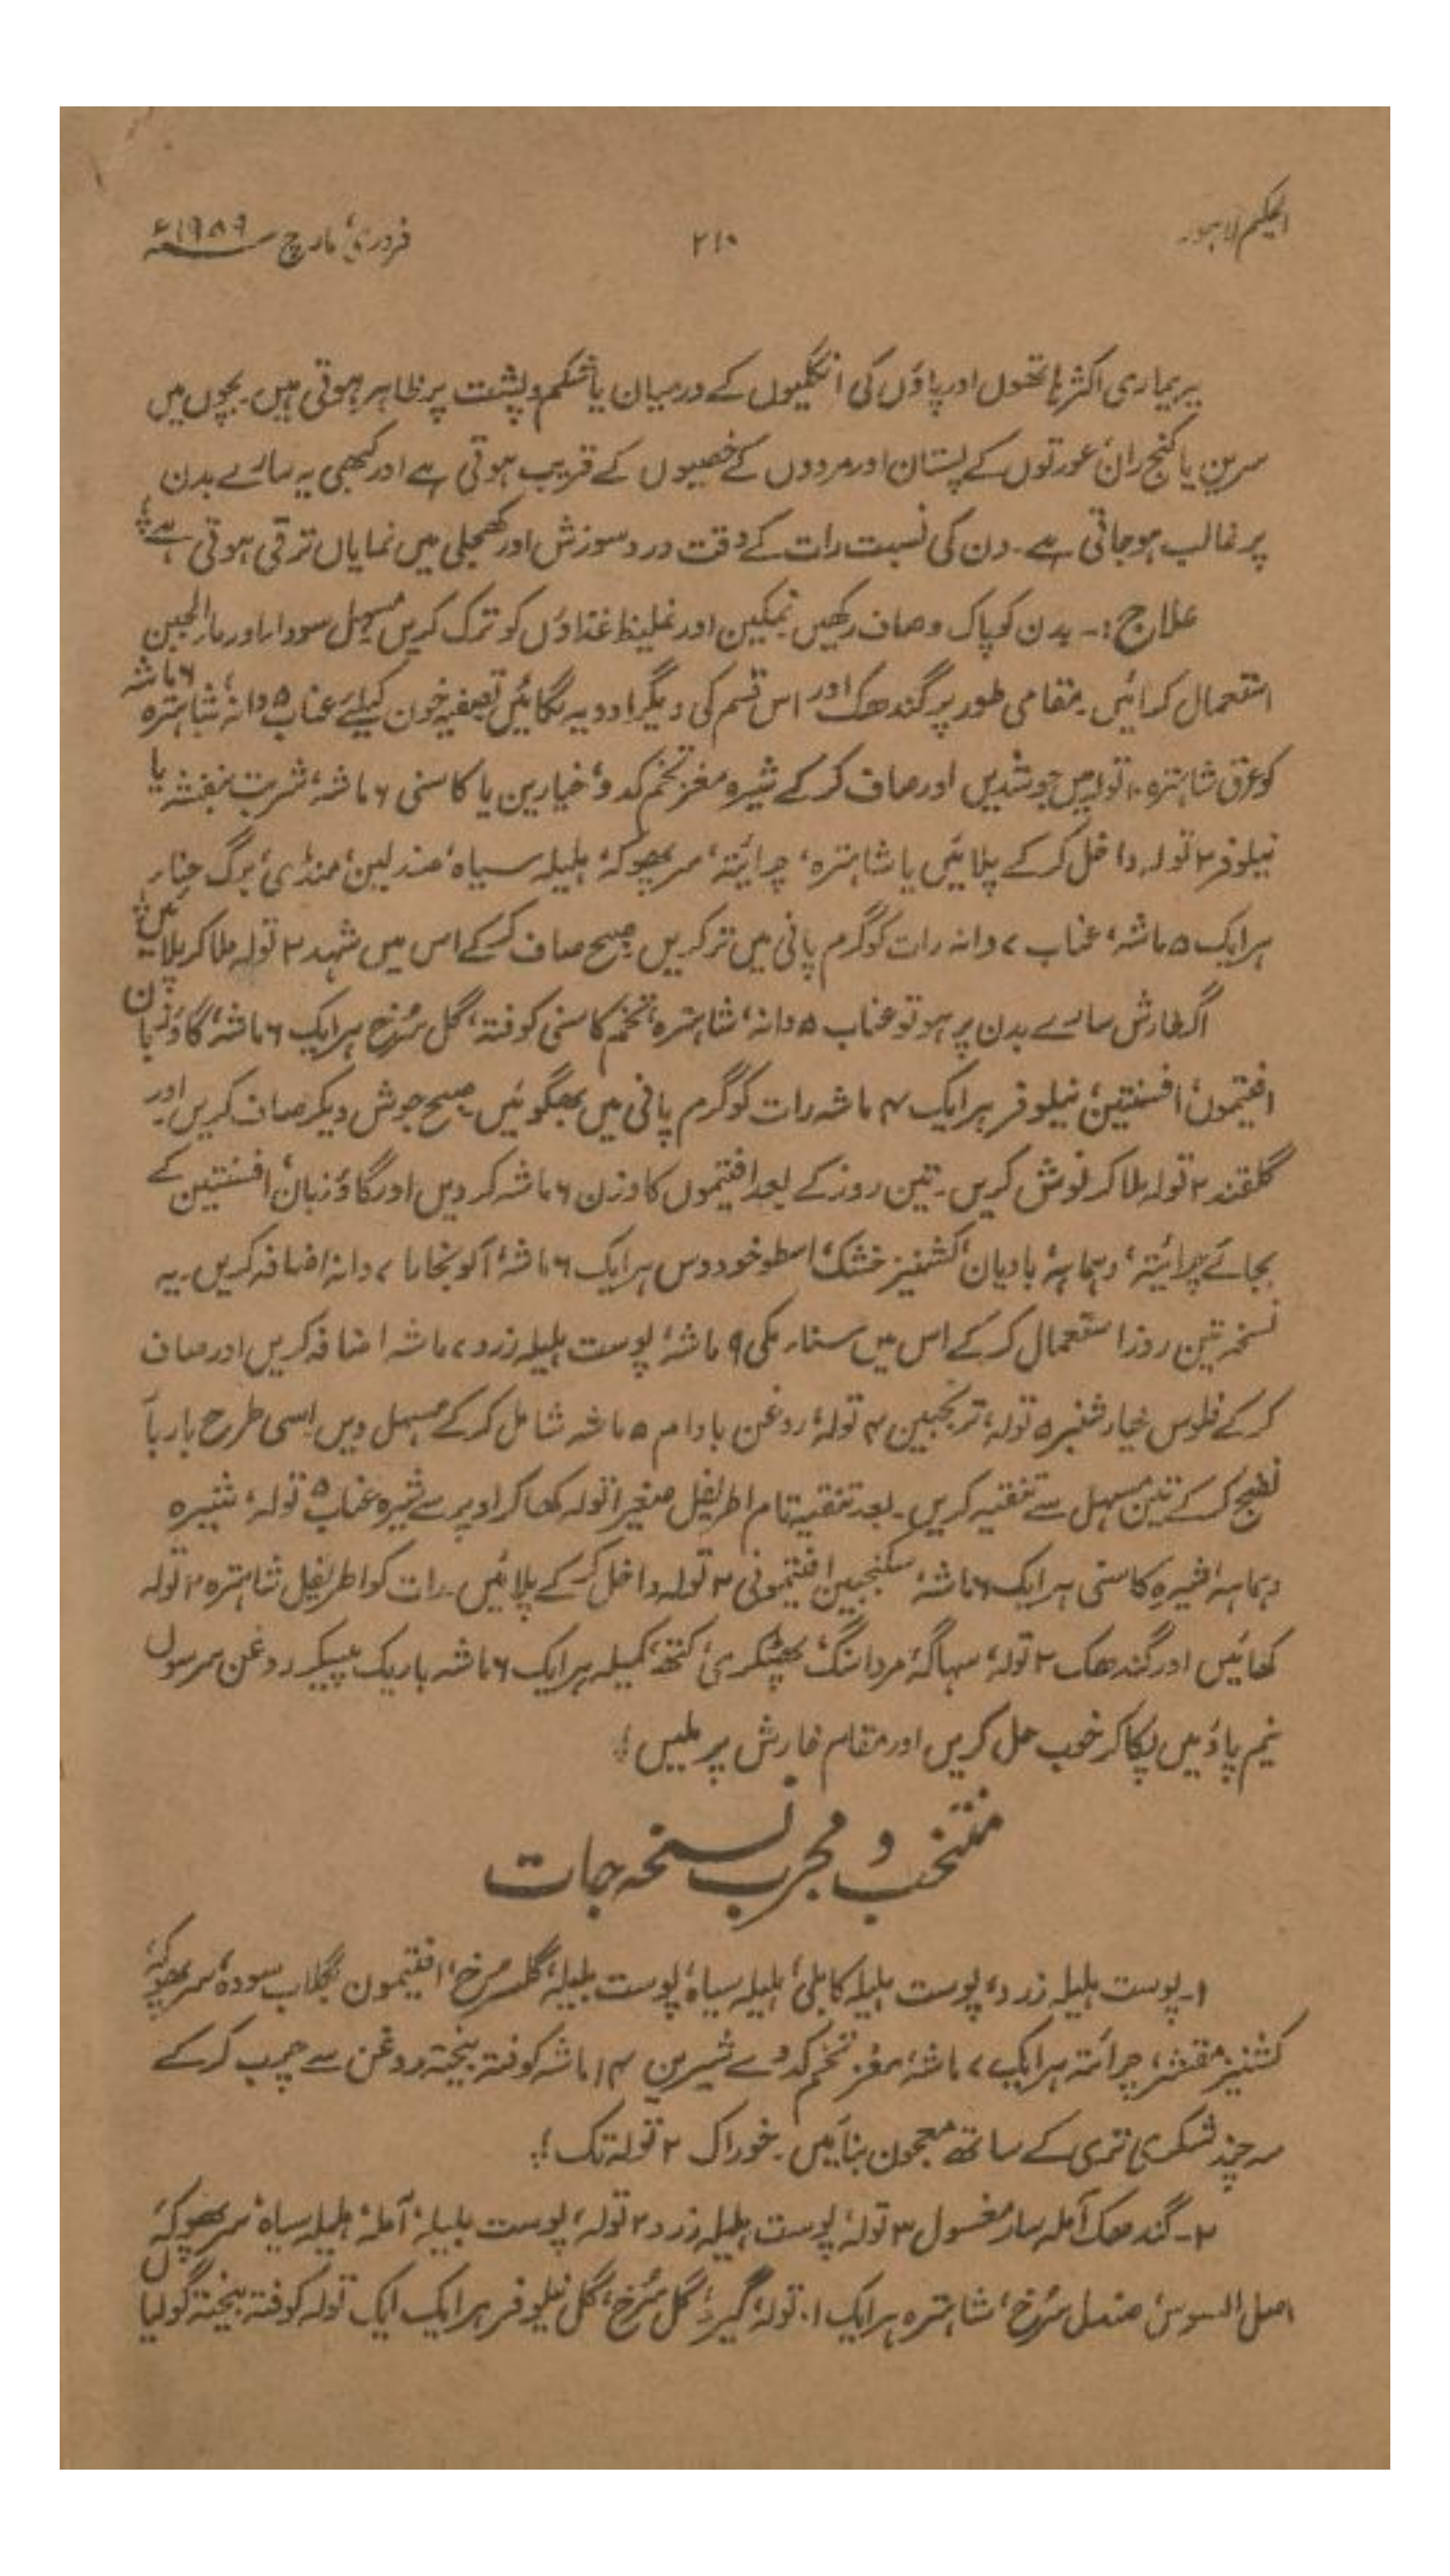 الحکیم لاہور
۲۱۰
فروری، مارچ ۱۹۵۹ء
یہ بیماری اکثر ہاتھوں اور پاؤں کی انگلیوں کے درمیان یا شکم و پشت پر ظاہر ہوتی ہیں۔ بچوں میں
سرین یا کنج ران، عورتوں کے پستان اور مردوں کے خصیوں کے قریب ہوتی ہے اور کبھی یہ سارے بدن
پر غالب ہو جاتی ہے۔ دن کی نسبت رات کے وقت درد سوزش اور کھجلی میں نمایاں ترقی ہوتی ہے؛
علاج:۔ بدن کو پاک و صاف رکھیں نمکین اور غلیظ غذاؤں کو ترک کریں مسہل سودا اور ماء الجبن
استعمال کرائیں۔ مقامی طور پر گندھک اور اس قسم کی دیگر ادویہ لگائیں تصفیہ خون کیلئے عناب ۵ دانہ، شاہترہ ۶ ماشہ
کو عرق شاہترہ ۱۰ تولہ میں جوشدیں اور صاف کر کے شیرہ مغز تخم کدو، خیارین یا کاسنی ۶ ماشہ، شربت بنفشہ یا
نیلوفر ۲ تولہ داخل کر کے پلائیں یا شاہترہ، چرائتہ، سرپھوکہ، ہلیلہ سیاہ، صندلین، منڈی، برگ حنا،
ہر ایک ۵ ماشہ، عناب ۷ دانہ رات کو گرم پانی میں تر کریں صبح صاف کر کے اس میں شہد ۲ تولہ ملا کر پلائیں؛
اگر خارش سارے بدن پر ہو تو عناب ۵ دانہ، شاہترہ، تخم کاسنی کوفتہ، گل سُرخ ہر ایک ۶ ماشہ، گاؤزبان
افتیموں، افسنتین، نیلوفر ہر ایک ۴ ماشہ رات کو گرم پانی میں بھگوئیں۔ صبح جوش دیکر صاف کریں اور
گلقند ۲ تولہ ملا کر نوش کریں۔ تین روز کے بعد افتیموں کا وزن ۶ ماشہ کر دیں اور گاؤزبان، افسنتین کے
بجائے چرائتہ، دہماسہ، بادیان، کشنیز خشک، اسطوخودوس ہر ایک ۶ ماشہ، آلو بخارا ۷ دانہ اضافہ کریں۔ یہ
نسخہ تین روز استعمال کر کے اس میں سناء مکی ۹ ماشہ، پوست ہلیلہ زرد ۷ ماشہ اضافہ کریں اور صاف
کر کے فلوس خیار شنبر ۵ تولہ، ترنجبین ۴ تولہ، روغن بادام ۵ ماشہ شامل کر کے مسہل دیں اسی طرح بار بار
نضج کر کے تین مسہل سے تنقیہ کریں۔ بعد تنقیہ تام اطریفل صغیر ۱ تولہ کھا کر اوپر سے شیرہ عناب ۵ تولہ، شیرہ
دہماسہ، شیرہ کاسنی ہر ایک ۶ ماشہ، سکنجبین افتیمونی ۲ تولہ داخل کر کے پلائیں۔ رات کو اطریفل شاہترہ ۲ تولہ
کھائیں اور گندھک ۲ تولہ، سہاگہ، مردا سنگ، پھٹکری، کتھ، کمیلہ ہر ایک ۶ ماشہ باریک پیسکر روغن سرسوں
نیم پاؤ میں پکا کر خوب حل کریں اور مقام خارش پر ملیں؛
منتخب و مجرب نسخہ جات
۱۔ پوست ہلیلہ زرد، پوست ہلیلہ کابلی، ہلیلہ سیاہ، پوست بلیلہ، گلسرخ، افتیمون بگلاب سودہ، سرپھوکہ،
کشنیز مقشر، چرائتہ ہر ایک ۷ ماشہ، مغز تخم کدوے شیریں ۱۴ ماشہ کوفتہ بیختہ روغن سے چرب کر کے
سہ چند شکری تری کے ساتھ معجون بنائیں۔ خوراک ۲ تولہ تک؛
۲۔ گندھک آملہ سار مغسول ۳ تولہ، پوست ہلیلہ زرد ۲ تولہ، پوست بلیلہ، آملہ، ہلیلہ سیاہ، سرپھوکہ،
اصل السوس، صندل سُرخ، شاہترہ ہر ایک ۱۰ تولہ، گیرو، گل سُرخ، گل نیلوفر ہر ایک ایک تولہ کوفتہ بیختہ گولیاں